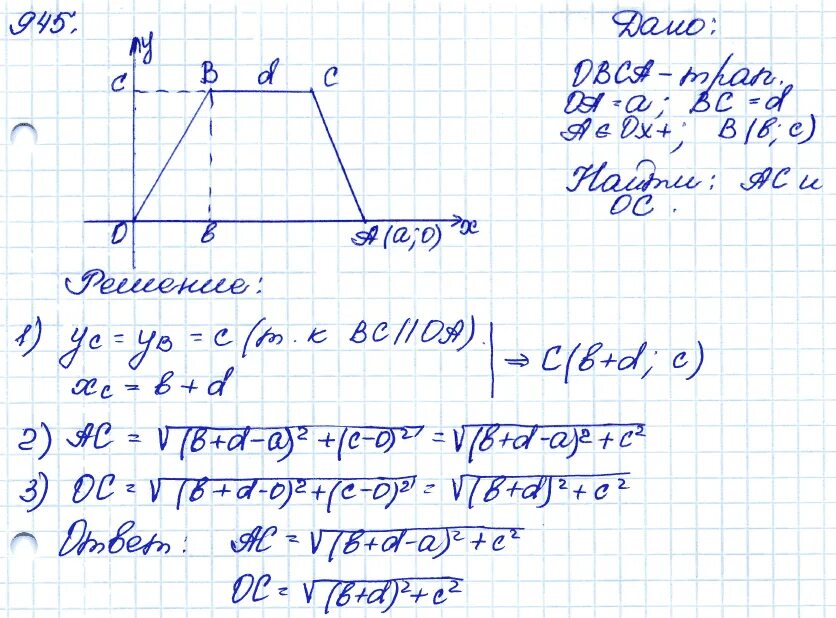 945.
Дано:
OBCA - трап.
OA = a; BC = d
A ∈ Ox+; B(b; c)
Найти: AC и
OC.
y
C B d C
O b A(a; 0) x
Решение:
1) yc = yB = c (т. к BC || OA).
xc = b + d
⇒ C(b+d; c)
2) AC = √(b+d-a)² + (c-0)² = √(b+d-a)² + c²
3) OC = √(b+d-0)² + (c-0)² = √(b+d)² + c²
Ответ: AC = √(b+d-a)² + c²
OC = √(b+d)² + c²